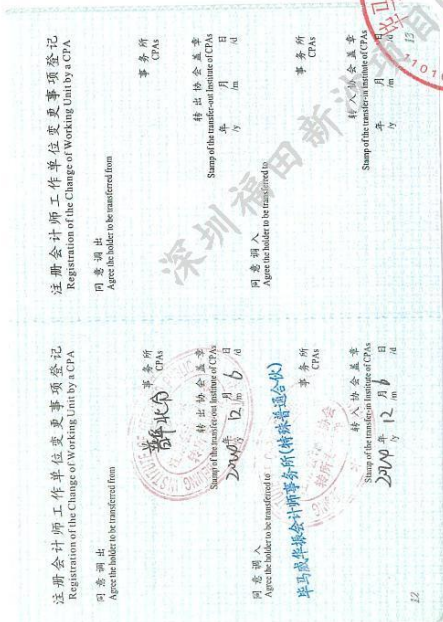 注册会计师工作单位变更事项登记
Registration of the Change of Working Unit by a CPA
同意调出
Agree the holder to be transferred from
事务所
CPAs
转出协会盖章
Stamp of the transfer-out Institute of CPAs
年 12 月 6 日
/y /m /d
同意调入
Agree the holder to be transferred to
毕马威华振会计师事务所(特殊普通合伙)
事务所
CPAs
转入协会盖章
Stamp of the transfer-in Institute of CPAs
年 12 月 6 日
/y /m /d
12
注册会计师工作单位变更事项登记
Registration of the Change of Working Unit by a CPA
同意调出
Agree the holder to be transferred from
事务所
CPAs
转出协会盖章
Stamp of the transfer-out Institute of CPAs
年 月 日
/y /m /d
同意调入
Agree the holder to be transferred to
事务所
CPAs
转入协会盖章
Stamp of the transfer-in Institute of CPAs
年 月 日
/y /m /d
13
深圳福田新沙项目